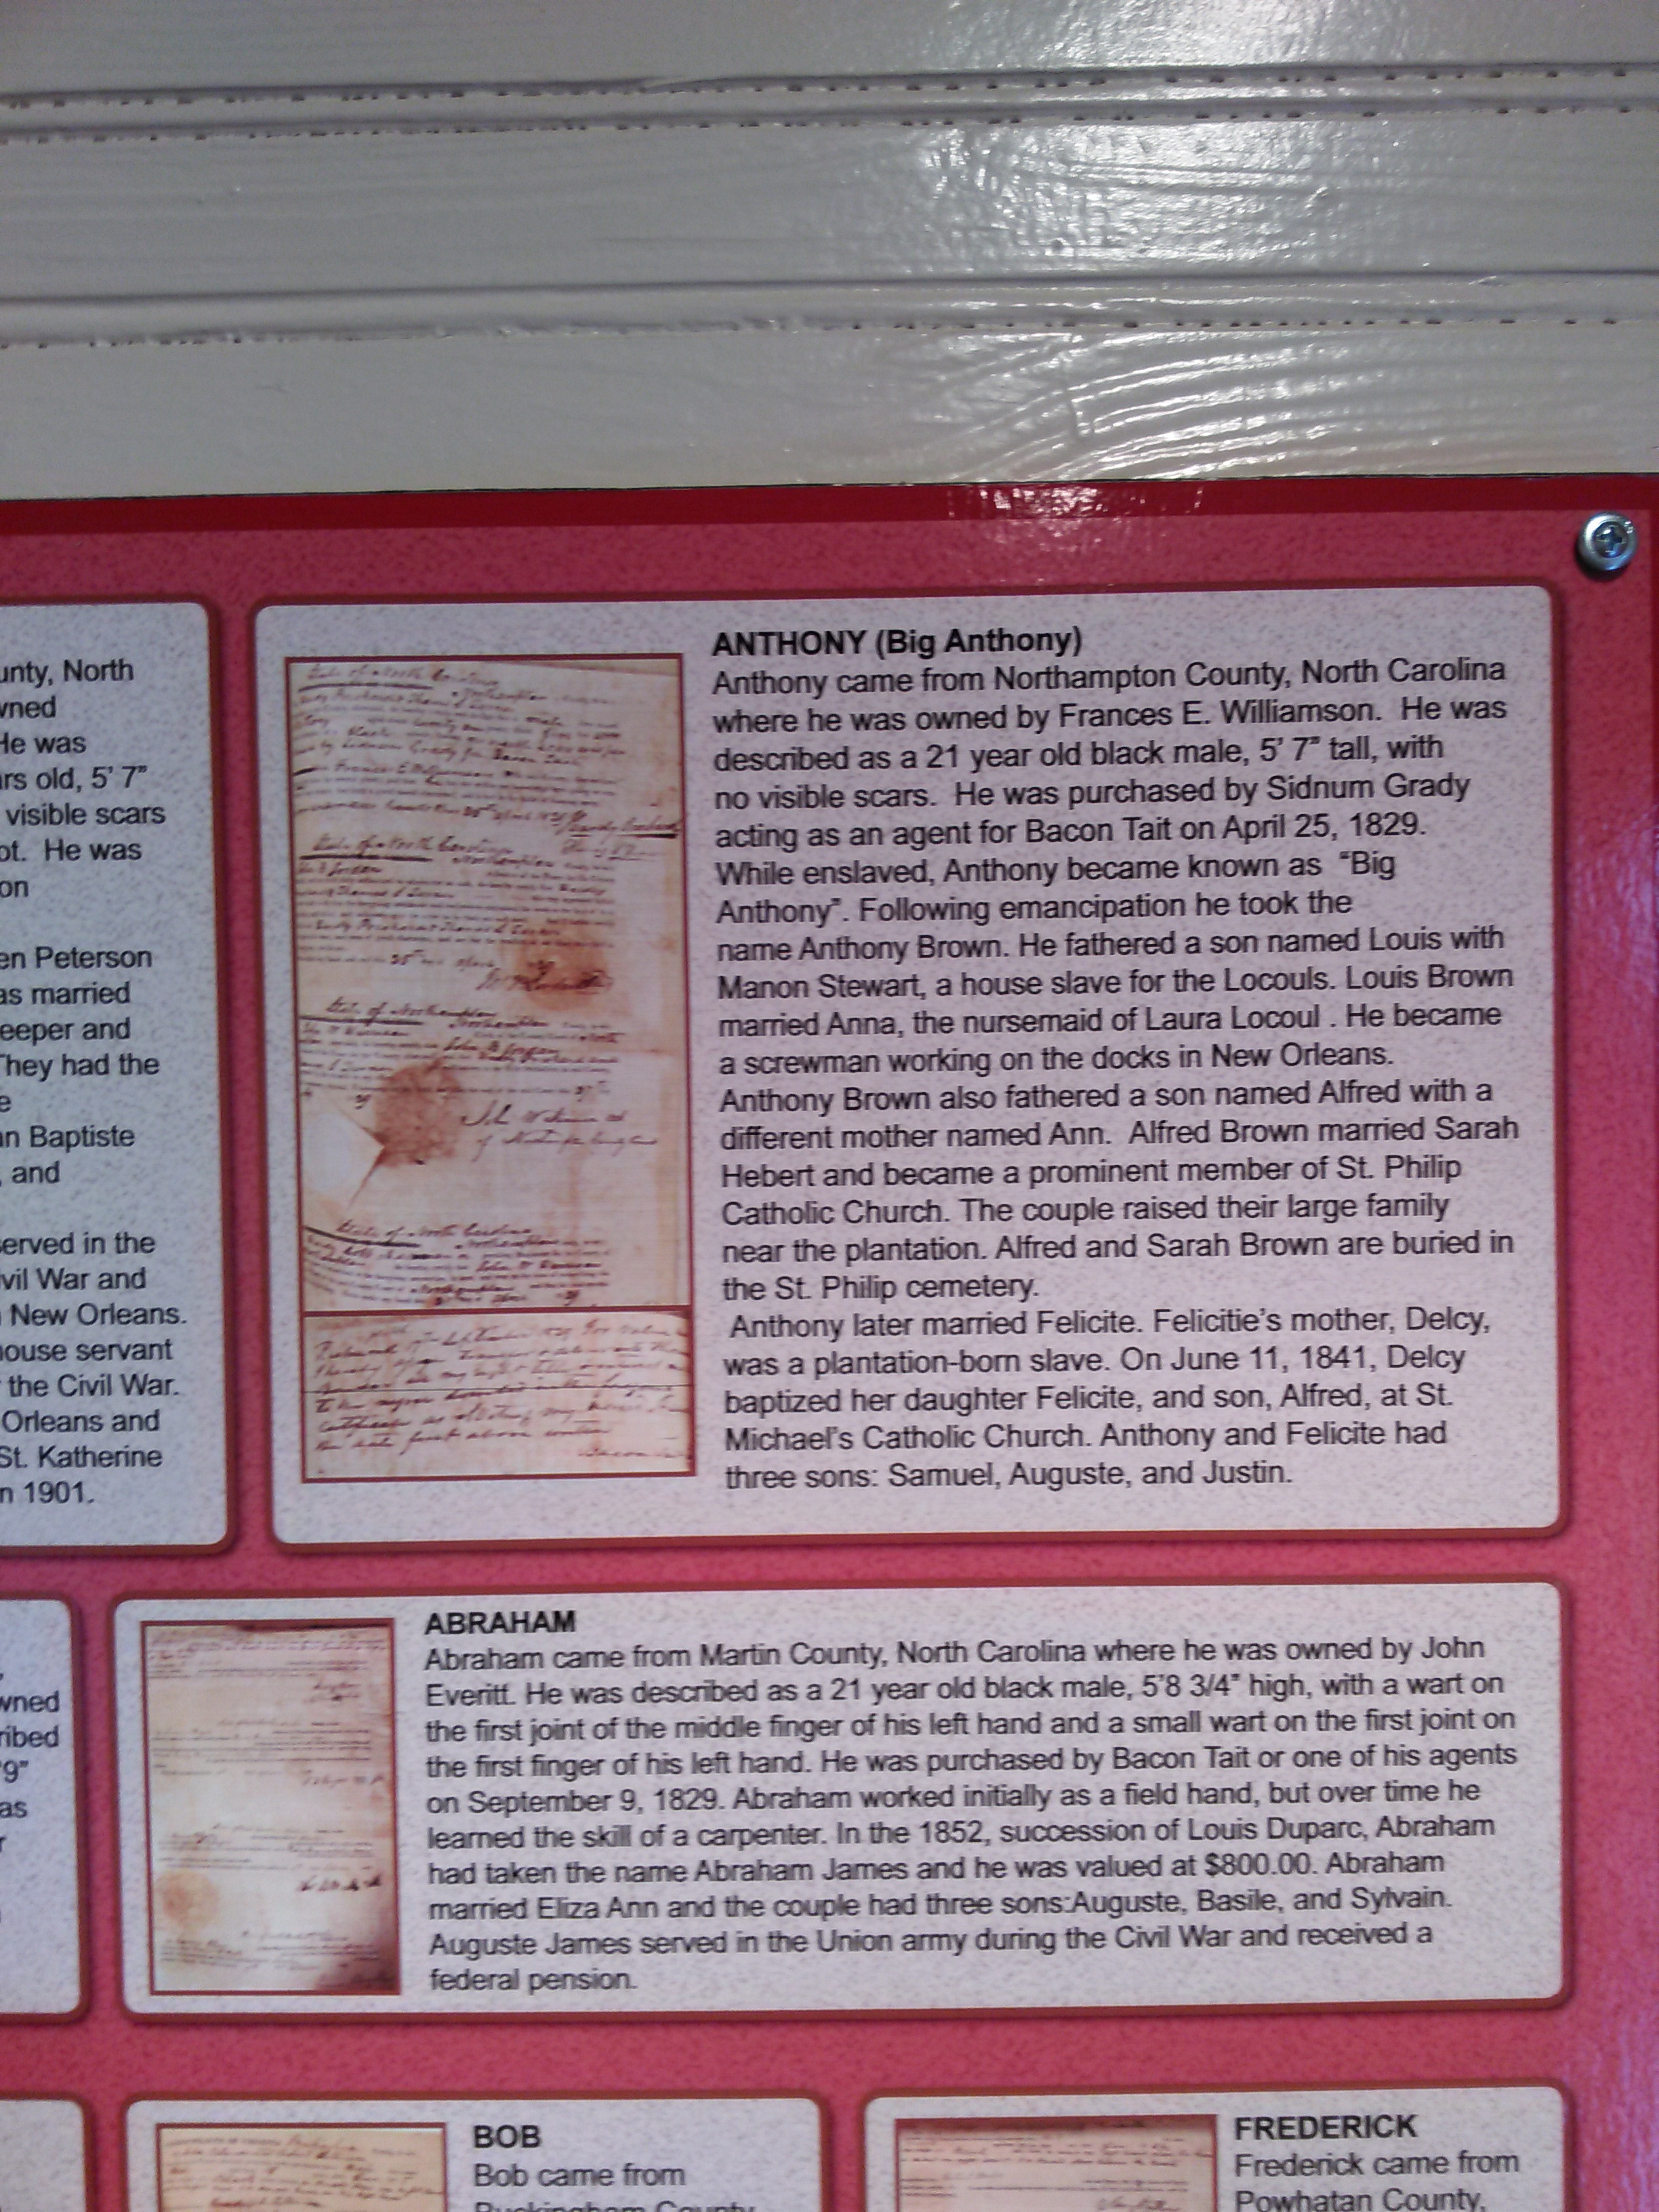 unty, North
wned
He was
rs old, 5' 7"
visible scars
ot. He was
on
en Peterson
as married
eeper and
They had the
e
n Baptiste
, and
erved in the
ivil War and
New Orleans.
ouse servant
the Civil War.
Orleans and
St. Katherine
n 1901.
ANTHONY (Big Anthony)
Anthony came from Northampton County, North Carolina
where he was owned by Frances E. Williamson. He was
described as a 21 year old black male, 5' 7" tall, with
no visible scars. He was purchased by Sidnum Grady
acting as an agent for Bacon Tait on April 25, 1829.
While enslaved, Anthony became known as "Big
Anthony". Following emancipation he took the
name Anthony Brown. He fathered a son named Louis with
Manon Stewart, a house slave for the Locouls. Louis Brown
married Anna, the nursemaid of Laura Locoul . He became
a screwman working on the docks in New Orleans.
Anthony Brown also fathered a son named Alfred with a
different mother named Ann. Alfred Brown married Sarah
Hebert and became a prominent member of St. Philip
Catholic Church. The couple raised their large family
near the plantation. Alfred and Sarah Brown are buried in
the St. Philip cemetery.
Anthony later married Felicite. Felicitie's mother, Delcy,
was a plantation-born slave. On June 11, 1841, Delcy
baptized her daughter Felicite, and son, Alfred, at St.
Michael's Catholic Church. Anthony and Felicite had
three sons: Samuel, Auguste, and Justin.
wned
ribed
'9"
as
r
ABRAHAM
Abraham came from Martin County, North Carolina where he was owned by John
Everitt. He was described as a 21 year old black male, 5'8 3/4" high, with a wart on
the first joint of the middle finger of his left hand and a small wart on the first joint on
the first finger of his left hand. He was purchased by Bacon Tait or one of his agents
on September 9, 1829. Abraham worked initially as a field hand, but over time he
learned the skill of a carpenter. In the 1852, succession of Louis Duparc, Abraham
had taken the name Abraham James and he was valued at $800.00. Abraham
married Eliza Ann and the couple had three sons:Auguste, Basile, and Sylvain.
Auguste James served in the Union army during the Civil War and received a
federal pension.
BOB
Bob came from
Buckingham County,
FREDERICK
Frederick came from
Powhatan County,